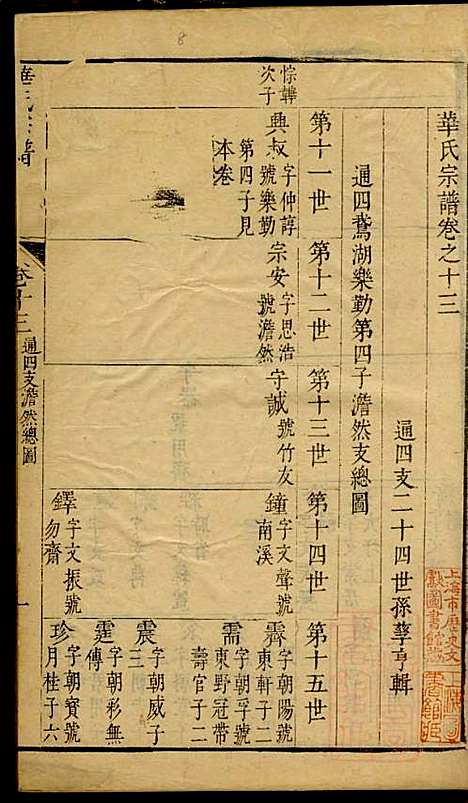 華氏宗譜卷之十三
通四支二十四世孫孳亨輯
通四鵞湖樂勤第四子澹然支總圖
第十一世
第十二世
第十三世
第十四世
第十五世
悰韡次子
興叔
字仲諄
號樂勤
第四子見
本卷
宗安
字思浩
號澹然
守誠
號竹友
鐘
字文聲號
南溪
霽
字朝陽號
東軒子二
需
字朝孚號
東野冠帶
壽官子二
震
字朝威子
三
霆
字朝彩無
傳
鐸
字文振號
勿齋
珍
字朝寶號
月桂子六
華氏宗譜
卷十三
通四支澹然總圖
一
上海市歷史文獻圖書館藏
8